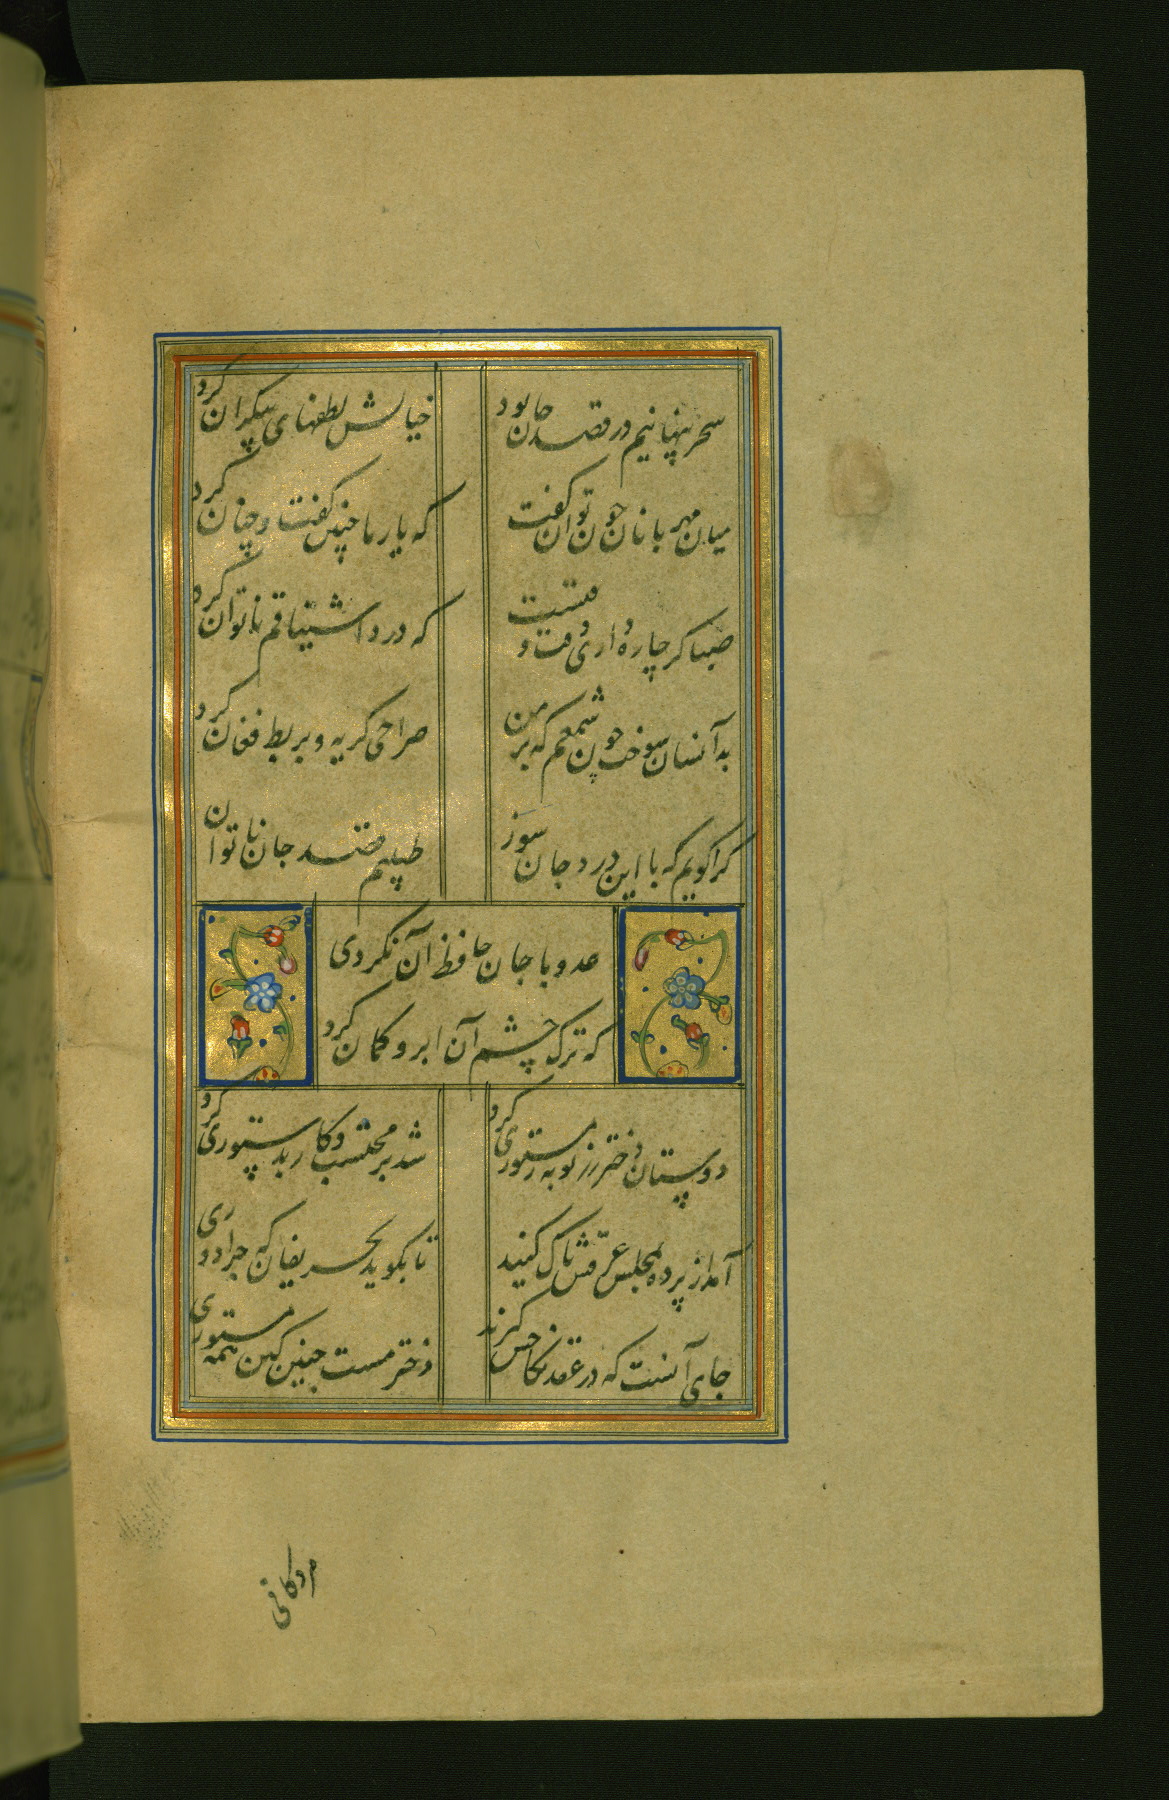 سحر پنهانیم در قصد جان بود
خیالش لطفهای بیکران کرد
میان مهربانان چون توان گفت
که یار ما چنین گفت و چنان کرد
صبا کر چاره داری وقت وقتست
که درد اشتیاقم ناتوان کرد
بدانسان سوخت چون شمعم که بر من
صراحی کریه و بربط فغان کرد
کرا کویم که با این درد جان سوز
طبیبم قصد جان ناتوان
عدو با جان حافظ آن نکردی
که ترک چشم آن ابرو کمان کرد
دوستان دختر رز توبه ز مستوری کرد
شد بر محتسب و کار بدستوری کرد
آمد از پرده بمجلس عرقش پاک کنید
تا بکوید بحریفان که چرا دوری
جای آنست که در عقد نکاحش کیرند
دختر مست چنین کین همه مستوری
مژدکانی